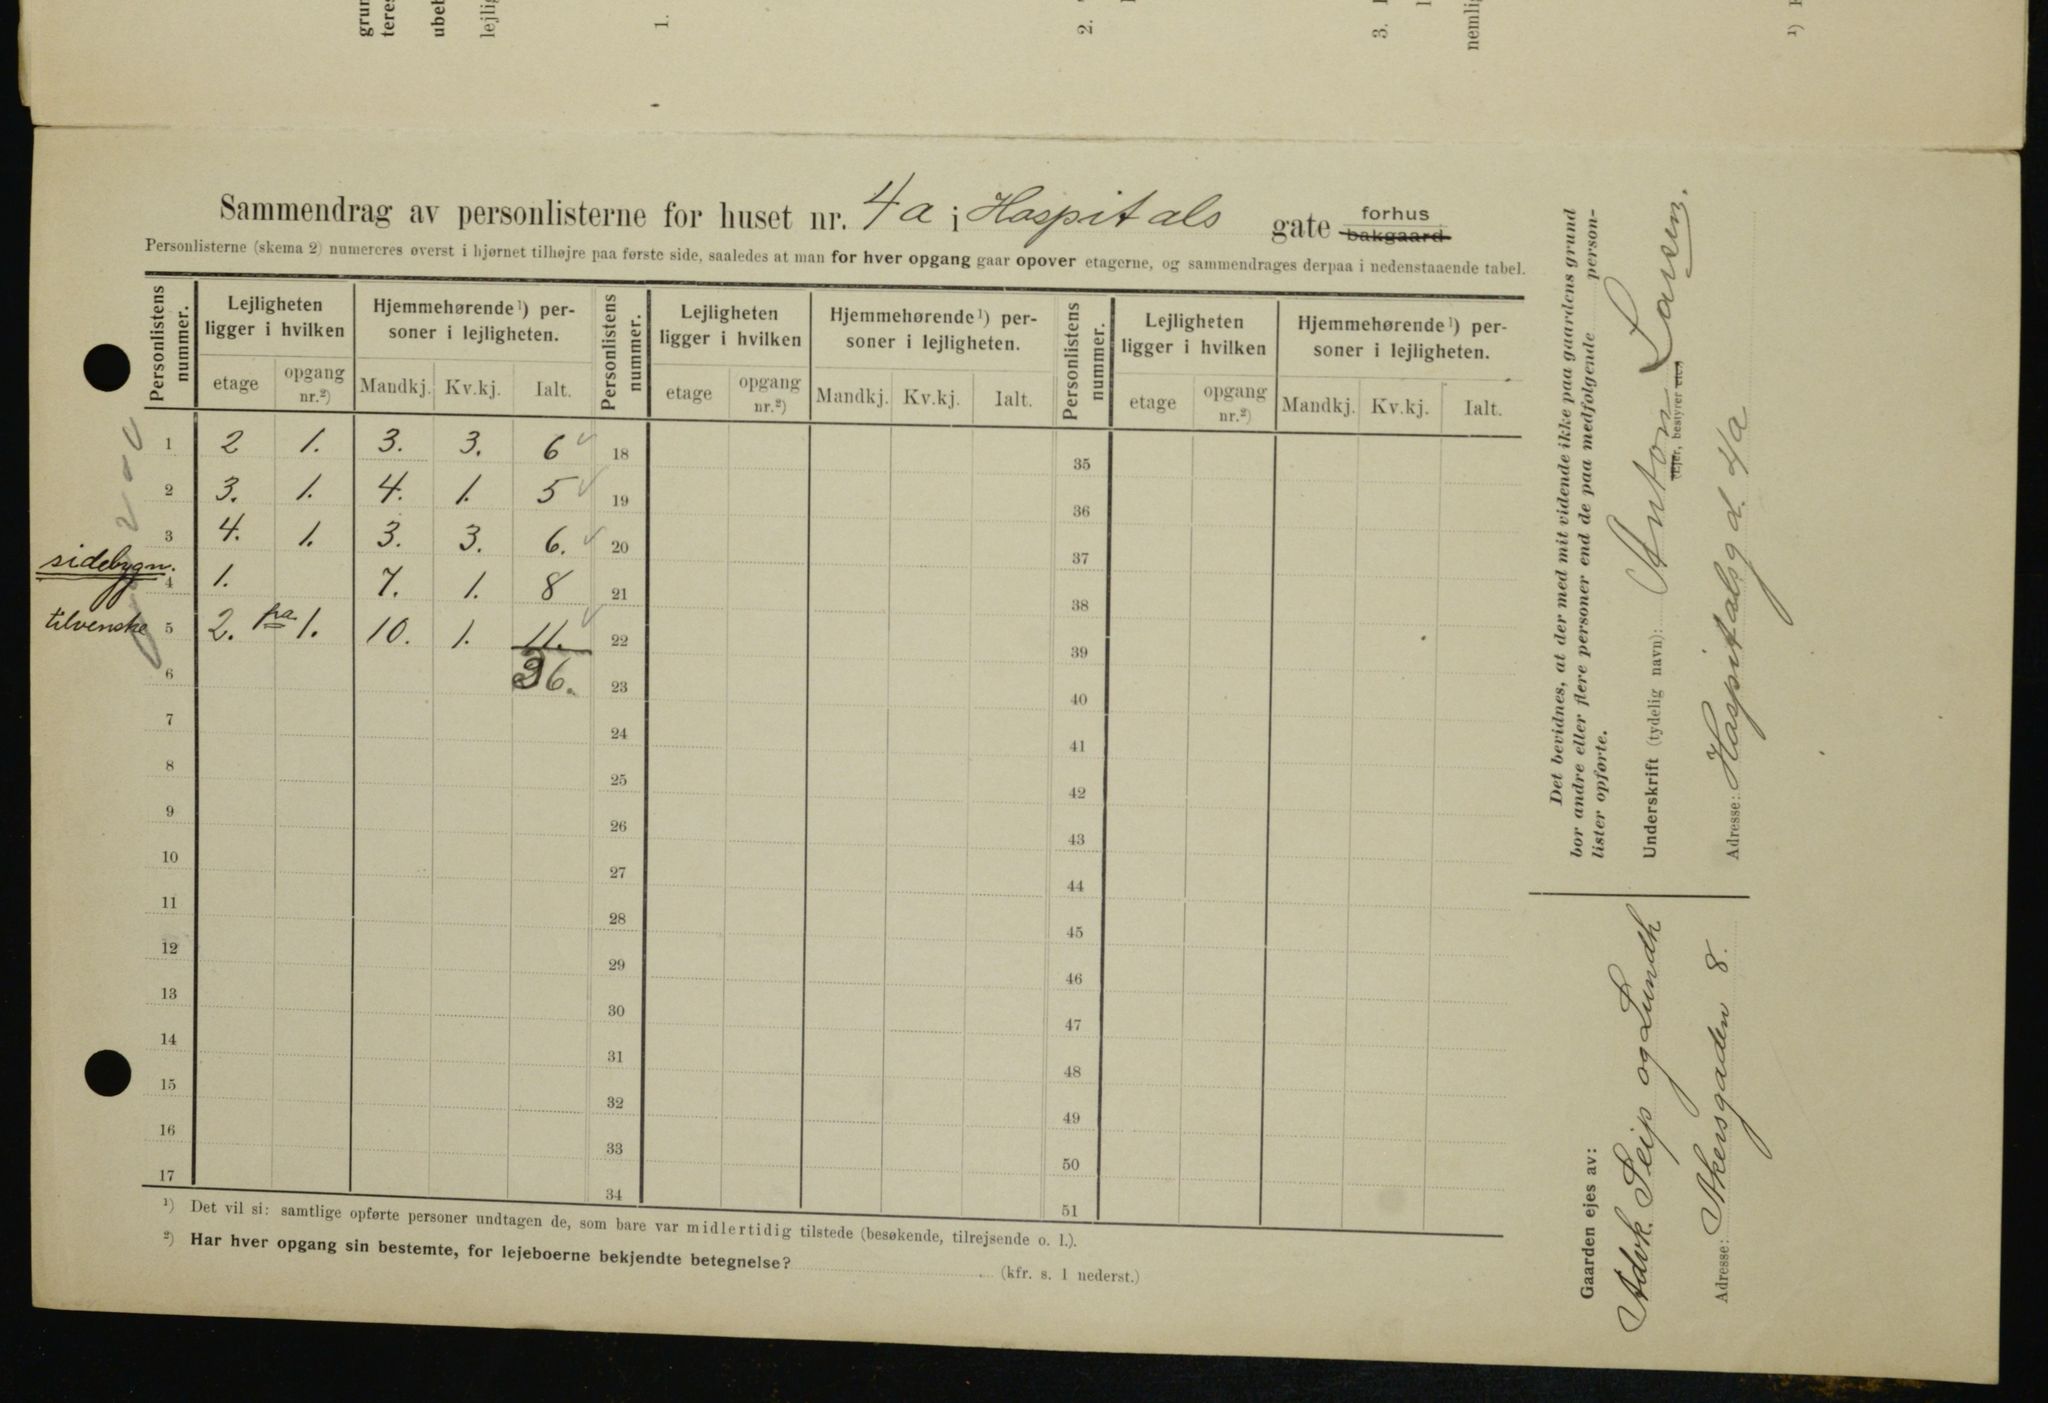 grun
teres
ubeb
lejlig
1.
2.
3.
nemlig
¹)
Sammendrag av personlisterne for huset nr. 4a i Hospitals gate forhus
bakgaard
Personlisterne (skema 2) numereres øverst i hjørnet tilhøjre paa første side, saaledes at man for hver opgang gaar opover etagerne, og sammendrages derpaa i nedenstaaende tabel.
Personlistens nummer. Lejligheten ligger i hvilken Hjemmehørende¹) personer i lejligheten. Personlistens nummer. Lejligheten ligger i hvilken Hjemmehørende¹) personer i lejligheten. Personlistens nummer. Lejligheten ligger i hvilken Hjemmehørende¹) personer i lejligheten.
etage opgang nr.²) Mandkj. Kv.kj. Ialt. etage opgang nr.²) Mandkj. Kv.kj. Ialt. etage opgang nr.²) Mandkj. Kv.kj. Ialt.
1 2 1. 3. 3. 6 18 35
2 3. 1. 4. 1. 5 19 36
3 4. 1. 3. 3. 6. 20 37
sidebygn. 4 1. 7. 1. 8 21 38
tilvenske 5 2. 1. 10. 1. 11. 22 39
6 36. 23 40
7 24 41
8 25 42
9 26 43
10 27 44
11 28 45
12 29 46
13 30 47
14 31 48
15 32 49
16 33 50
17 34 51
¹) Det vil si: samtlige opførte personer undtagen de, som bare var midlertidig tilstede (besøkende, tilrejsende o. l.).
²) Har hver opgang sin bestemte, for lejeboerne bekjendte betegnelse?
(kfr. s. 1 nederst.)
Det bevidnes, at der med mit vidende ikke paa gaardens grund
bor andre eller flere personer end de paa medfølgende person-
lister opførte.
Underskrift (tydelig navn): Anton Larsen.
(Ejer, bestyrer etc.)
Adresse: Hospitalsgd. 4a
Gaarden ejes av:
Advk. Seip og Lundh
Adresse: Akersgaden 8.